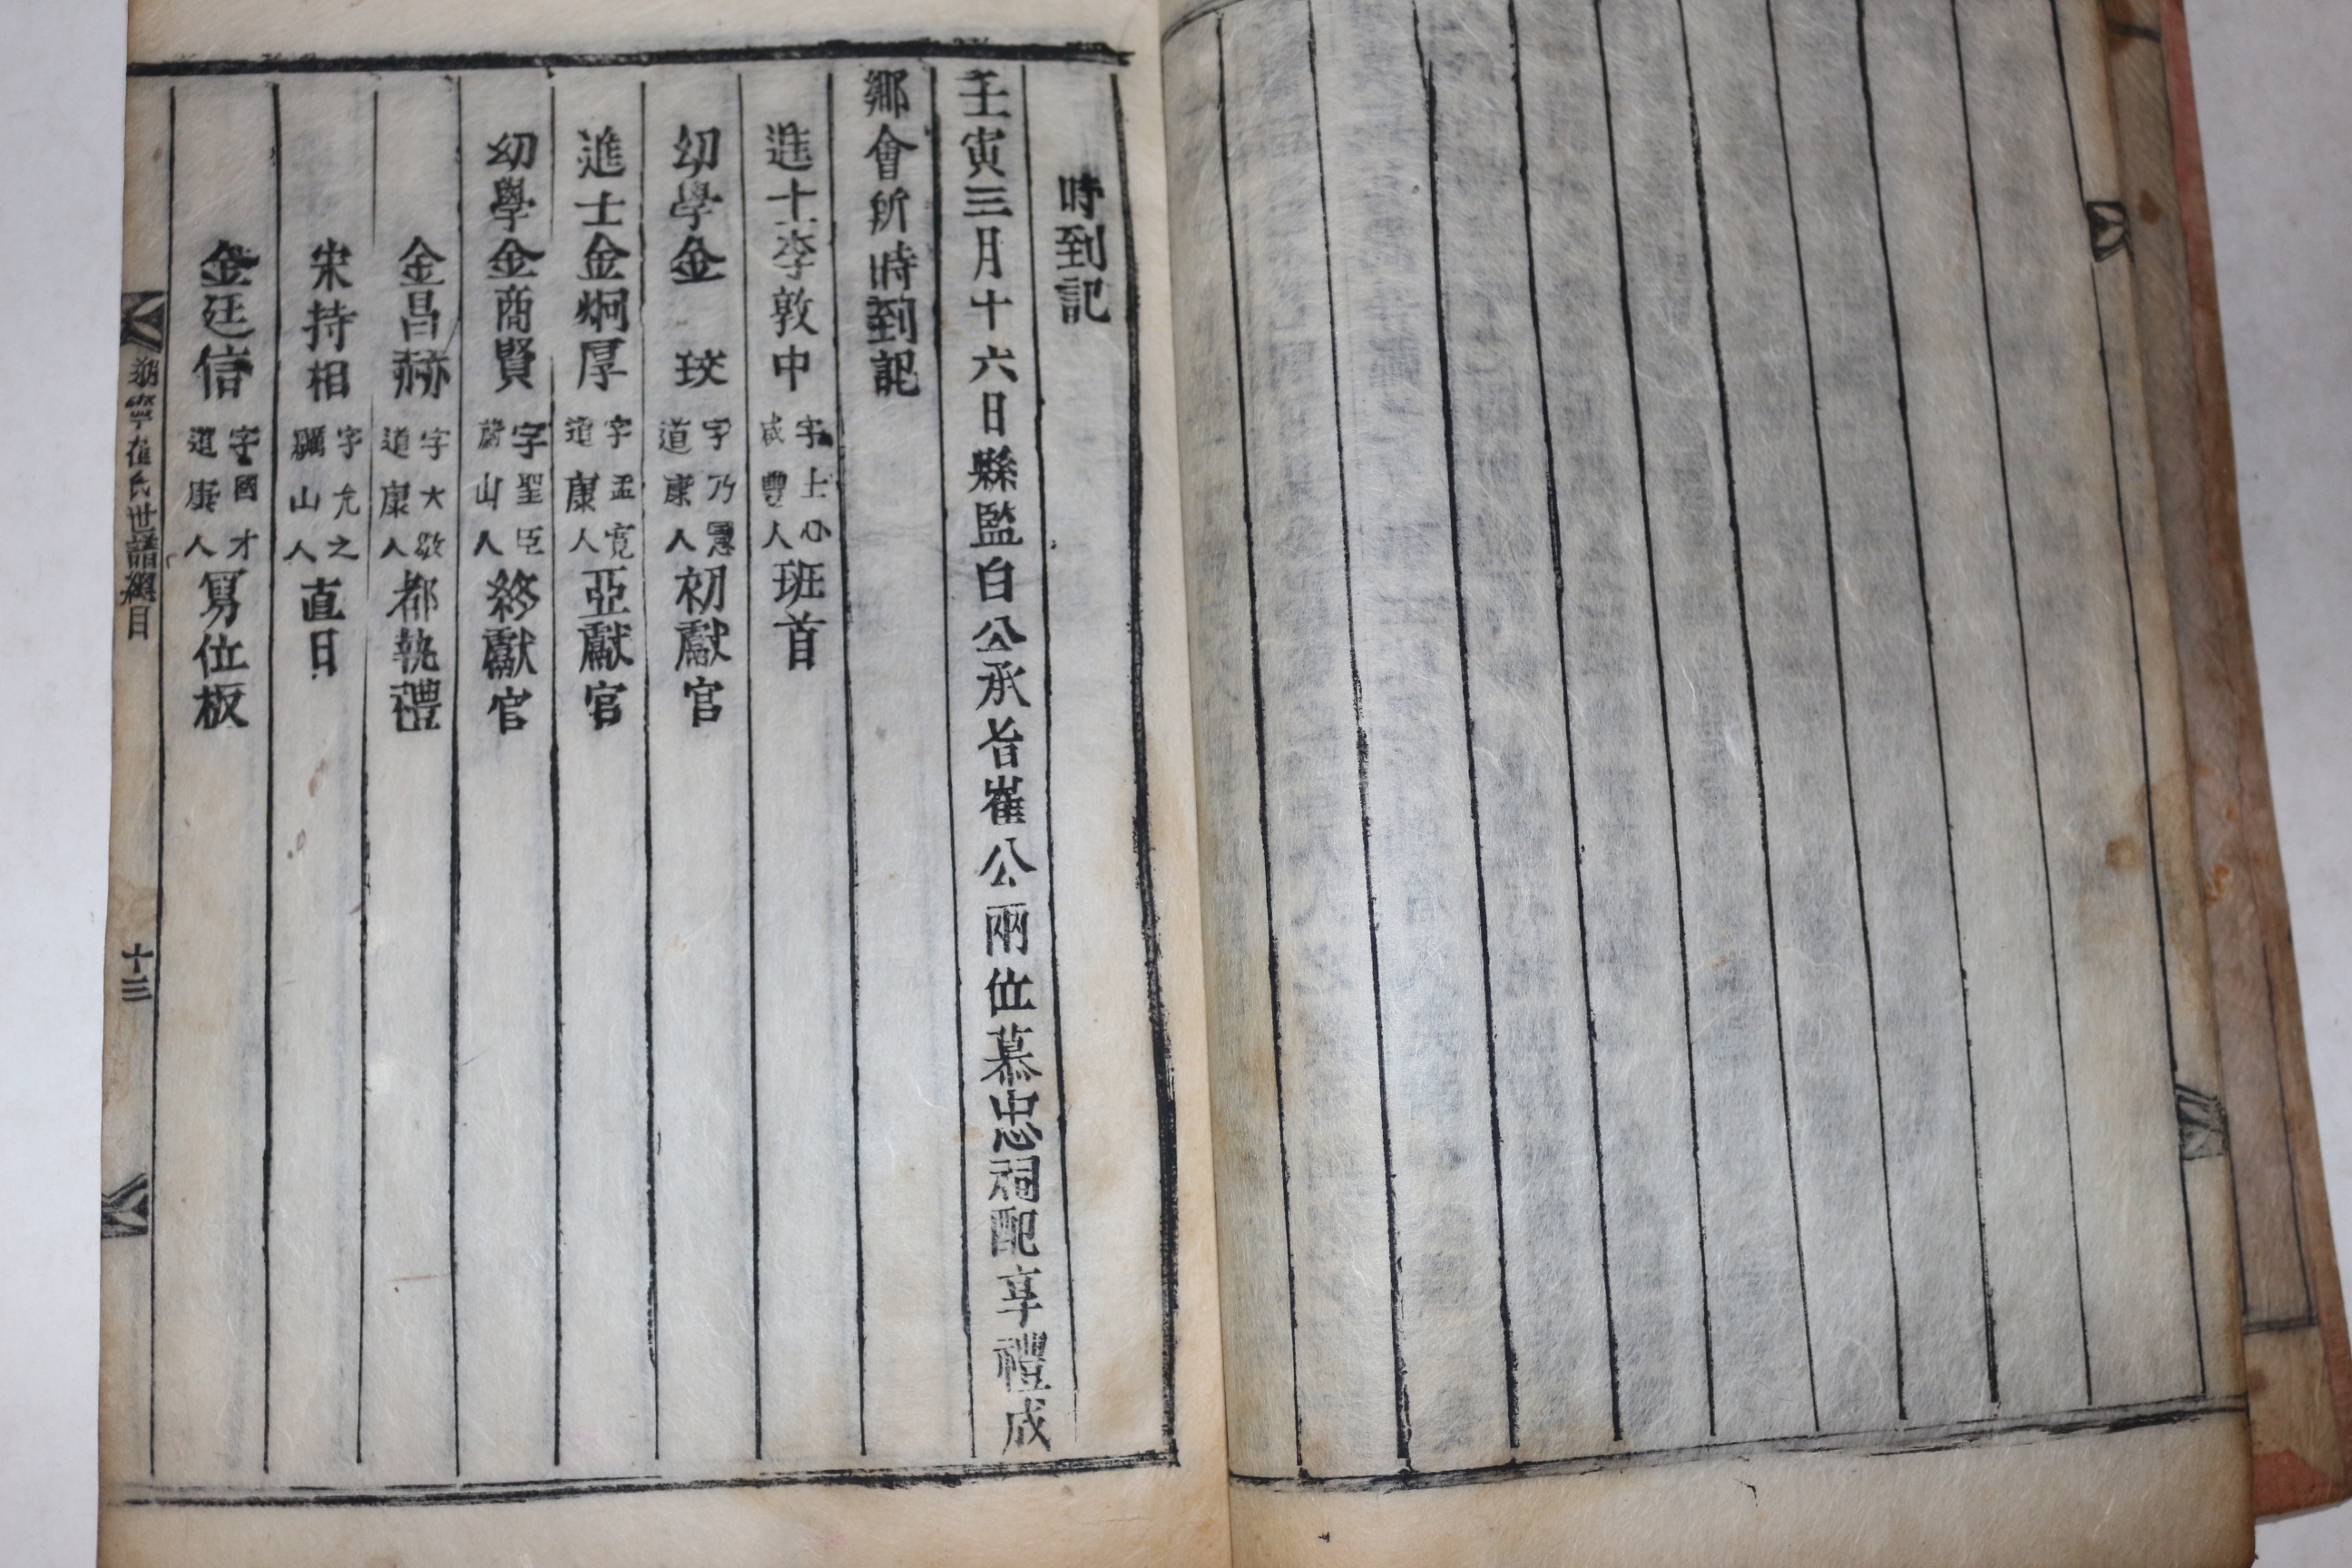 時到記
壬寅三月十六日縣監白公承旨崔公兩位慕忠祠配享禮成
鄉會所時到記
進士李敦中 字士心 咸豐人 班首
幼學金 琰 字乃 道康人 初獻官
進士金炯厚 字孟寬 道康人 亞獻官
幼學金商賢 字聖臣 蔚山人 終獻官
金昌赫 字大 道康人 都執禮
宋持相 字允之 礪山人 直日
金廷信 字國才 道康人 冩位板
朔寧崔氏世譜綱目
十三